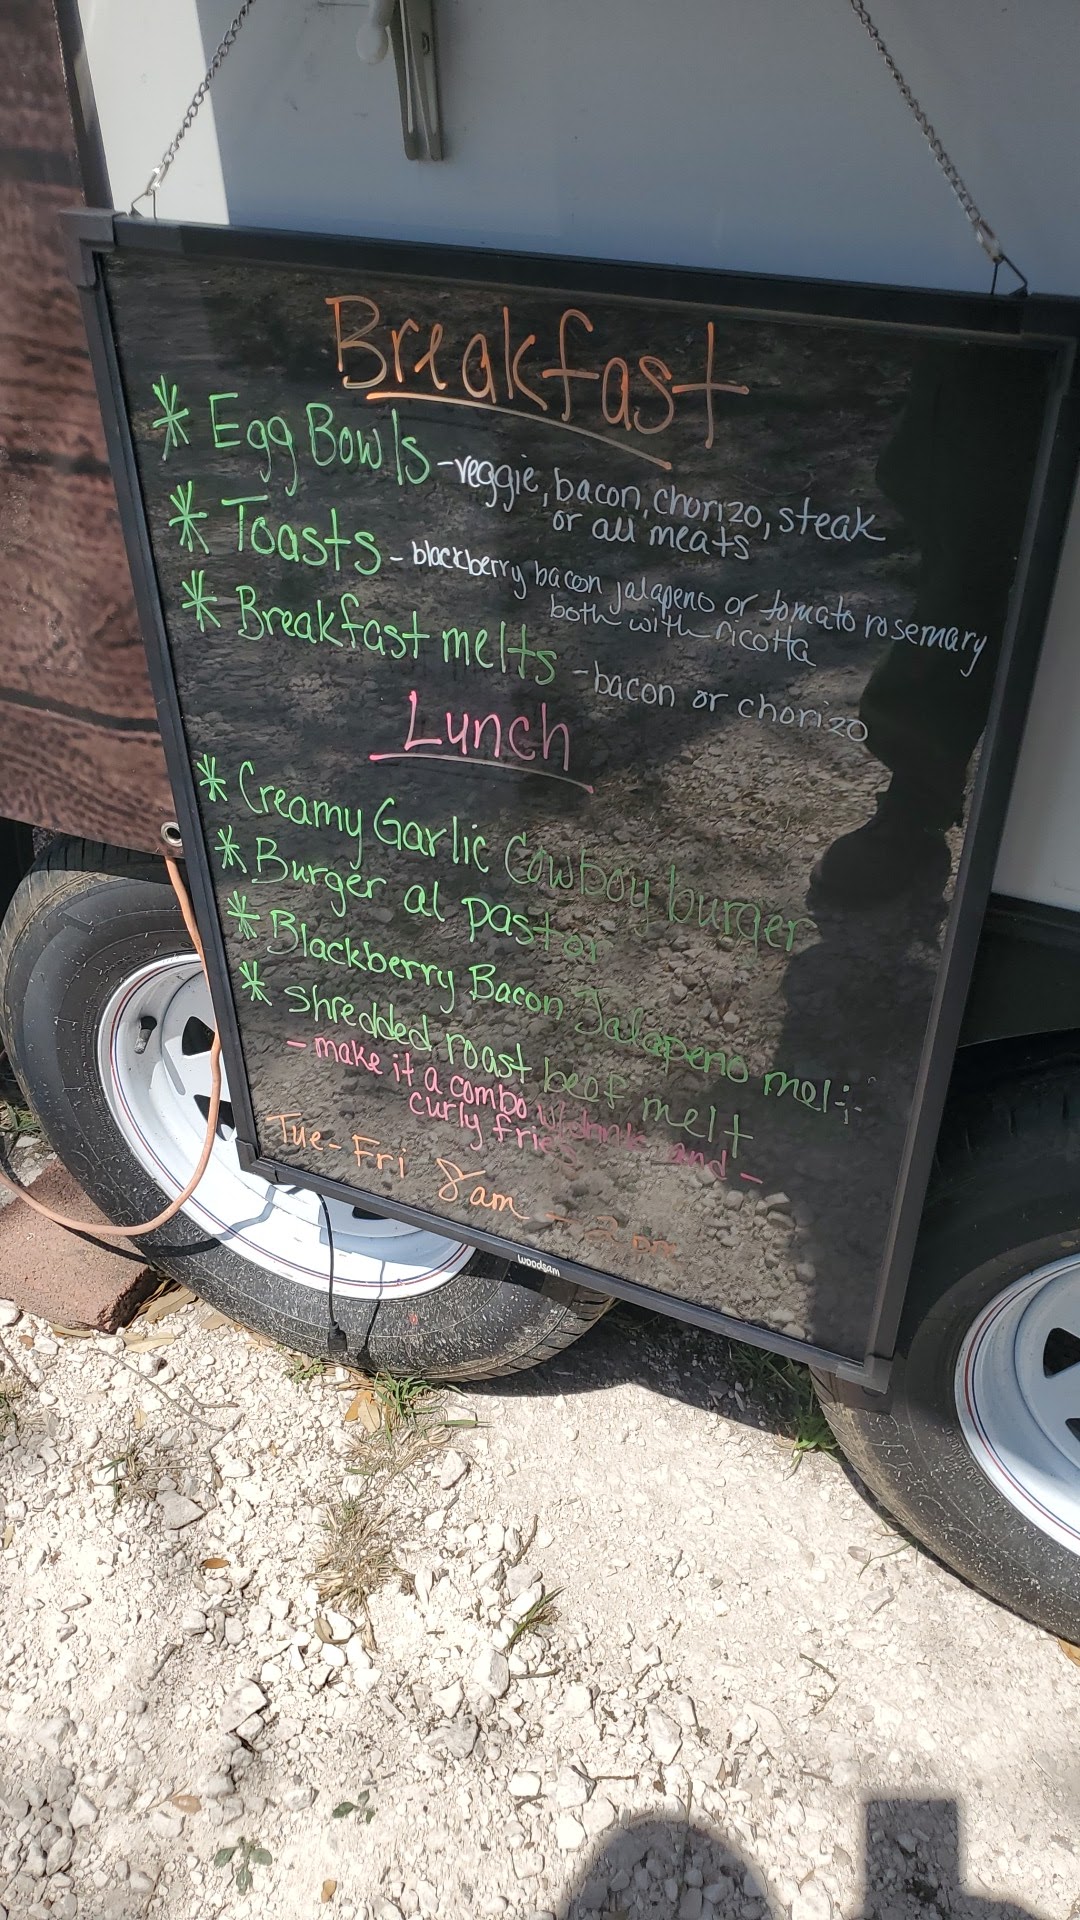 Breakfast
* Egg Bowls - veggie, bacon, chorizo, steak
or all meats
* Toasts - blackberry bacon jalapeno or tomato rosemary
both with ricotta
* Breakfast melts - bacon or chorizo
Lunch
* Creamy Garlic Cowboy burger
* Burger al pastor
* Blackberry Bacon Jalapeno melt
* Shredded roast beef melt
- make it a combo w/drink and -
curly fries
Tue - Fri 8am - 2pm
woodsam